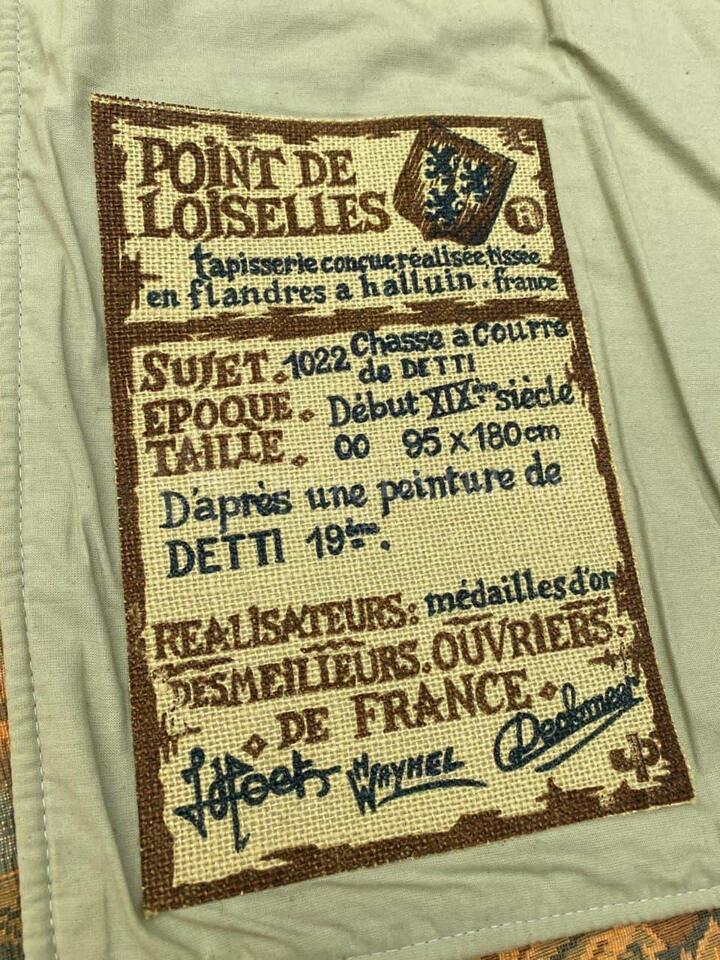 POINT DE
LOISELLES
®
tapisserie conçue, réalisée, tissée
en flandres a halluin. france
SUJET. 1022 Chasse à Courre
de DETTI
EPOQUE. Début XIXème siècle
TAILLE. 00 95 x 180 cm
D'après une peinture de
DETTI 19ème.
REALISATEURS: médailles d'or
DES MEILLEURS. OUVRIERS.
DE FRANCE
WAYMEL